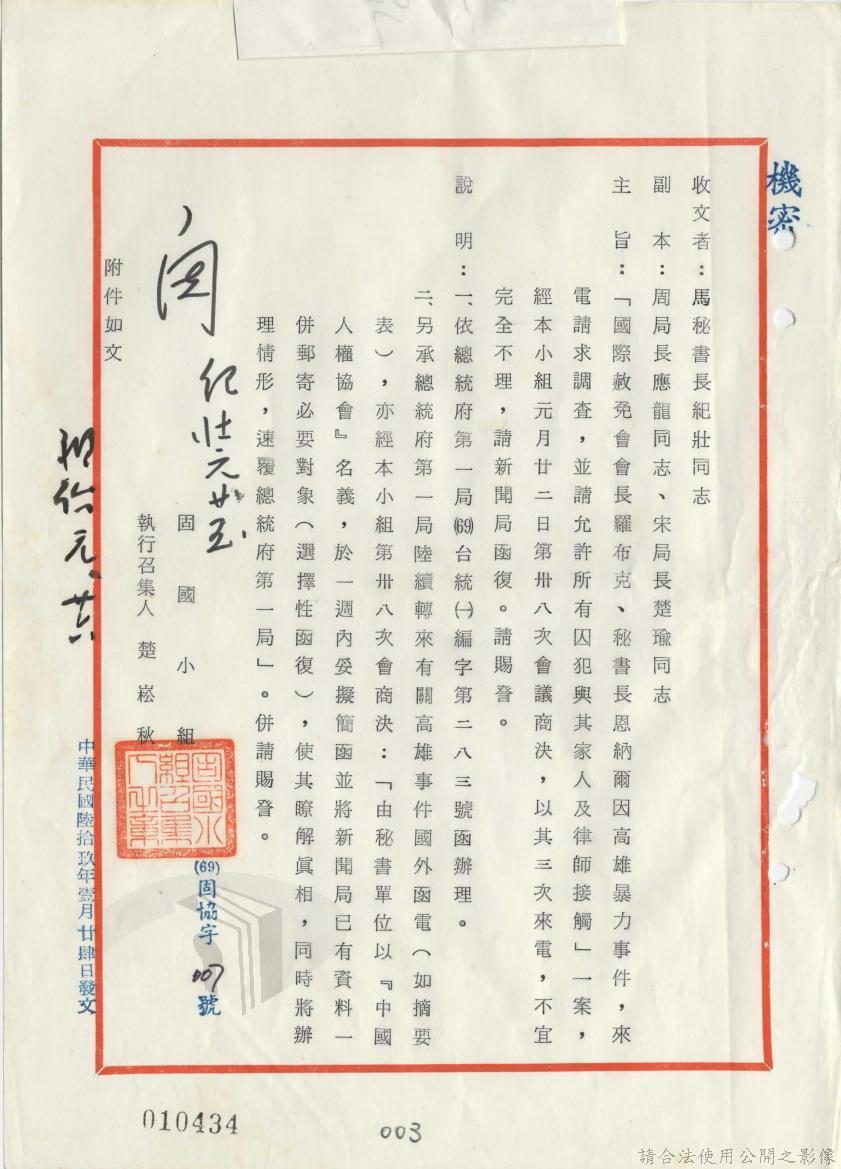 機密
收文者：馬秘書長紀壯同志
副　本：周局長應龍同志、宋局長楚瑜同志
主　旨：「國際赦免會會長羅布克、秘書長恩納爾因高雄暴力事件，來
電請求調查，並請允許所有囚犯與其家人及律師接觸」一案，
經本小組元月廿二日第卅八次會議商決，以其三次來電，不宜
完全不理，請新聞局函復。請賜詧。
說　明：一、依總統府第一局(69)台統㈠編字第二八三號函辦理。
二、另承總統府第一局陸續轉來有關高雄事件國外函電（如摘要
表），亦經本小組第卅八次會商決：「由秘書單位以『中國
人權協會』名義，於一週內妥擬簡函並將新聞局已有資料一
併郵寄必要對象（選擇性函復），使其瞭解眞相，同時將辦
理情形，速覆總統府第一局」。併請賜詧。
閱
紀壯元廿五
固國小組
執行召集人　楚崧秋
固國小組召集人之章
(69)固協字 007 號
附件如文
元、廿六
中華民國陸拾玖年壹月廿肆日發文
010434
003
請合法使用公開之影像